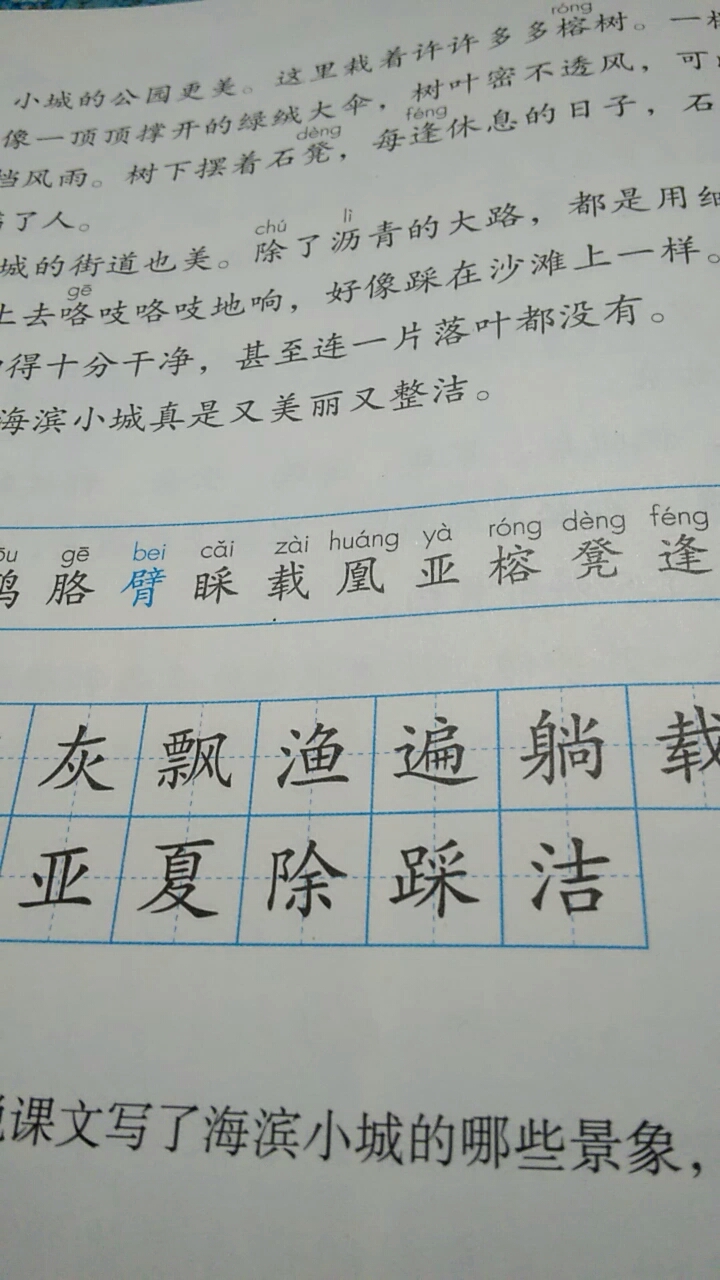 róng
小城的公园更美。这里栽着许许多多榕树。一
像一顶顶撑开的绿绒大伞，树叶密不透风，可
dèng féng
风雨。树下摆着石凳，每逢休息的日子，石
了人。
chú lì
城的街道也美。除了沥青的大路，都是用细
gē
上去咯吱咯吱地响，好像踩在沙滩上一样。
得十分干净，甚至连一片落叶都没有。
海滨小城真是又美丽又整洁。
ōu gē bei cǎi zài huáng yà róng dèng féng
鸥 胳 臂 睬 载 凰 亚 榕 凳 逢
灰 飘 渔 遍 躺 载
亚 夏 除 踩 洁
课文写了海滨小城的哪些景象，